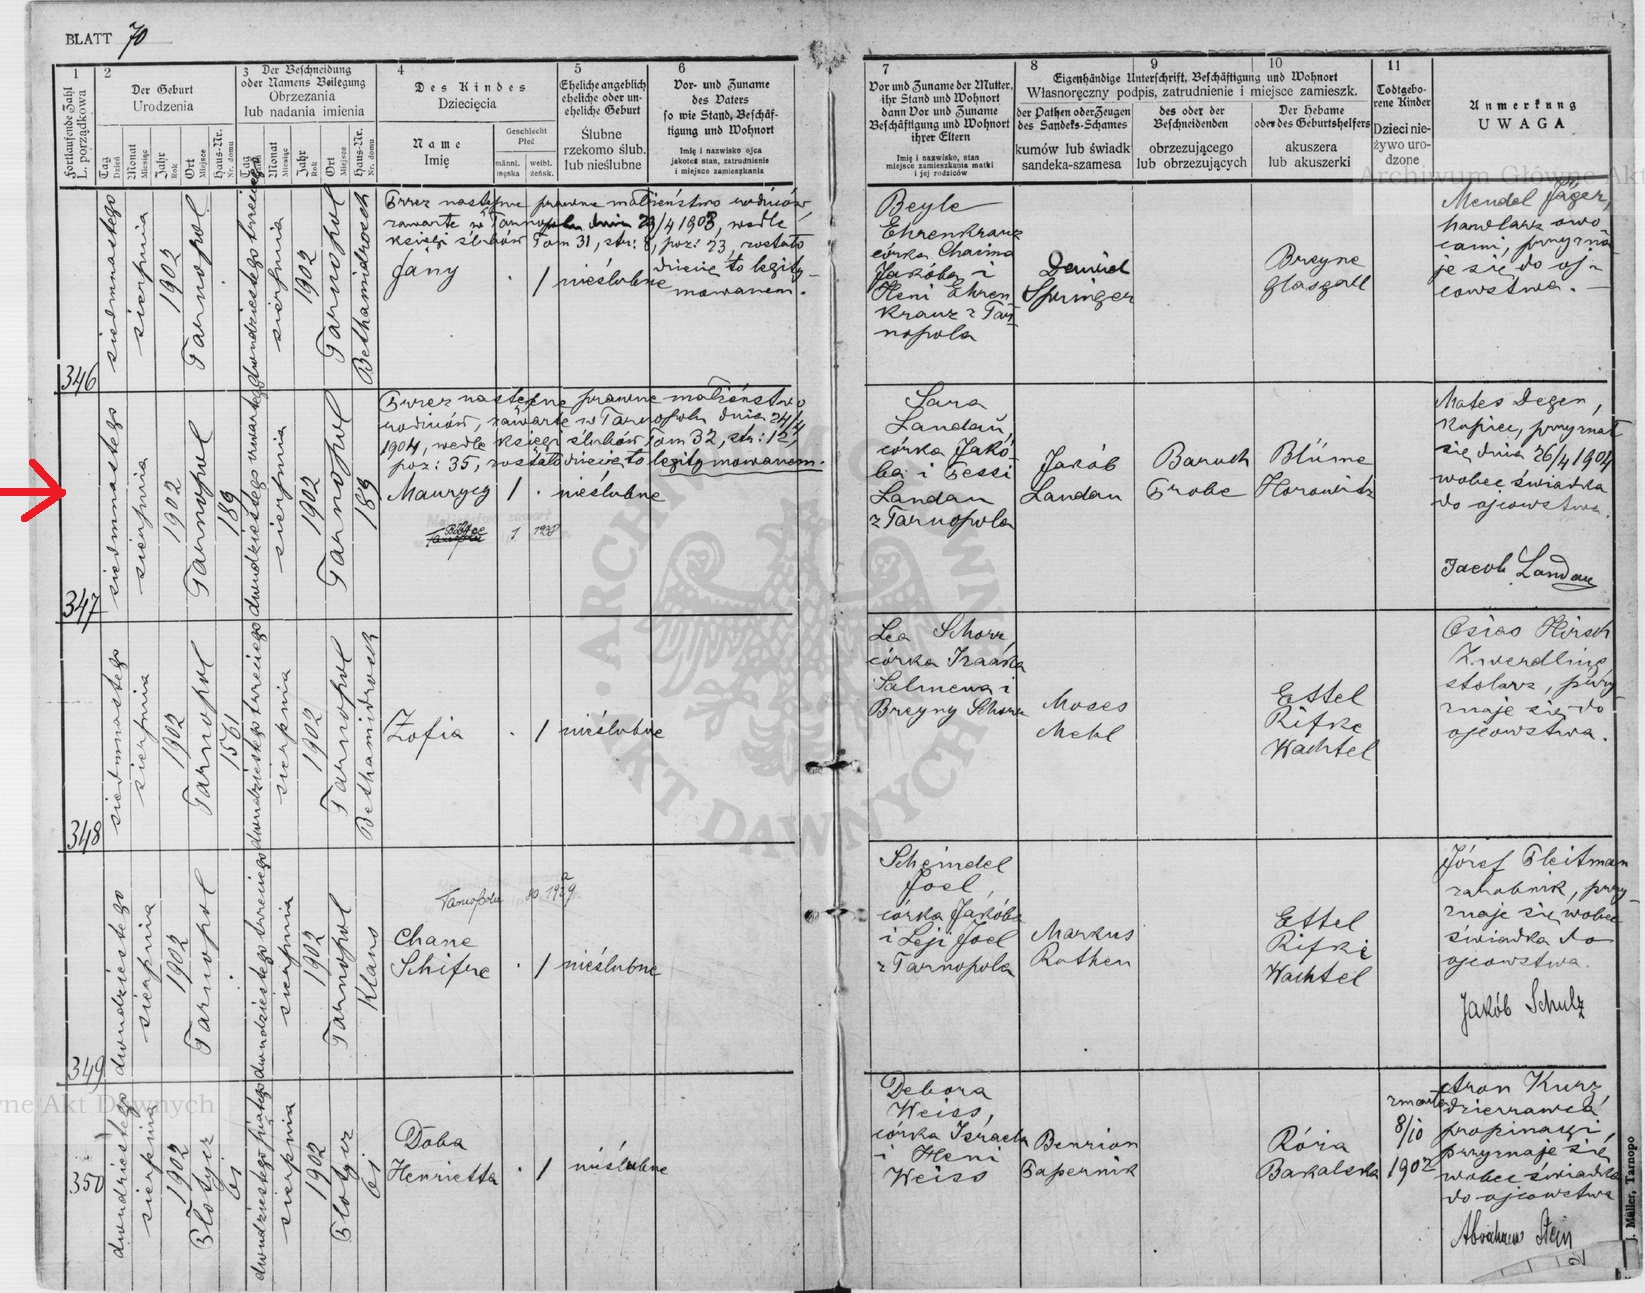 BLATT 70
1
2
Der Geburt
Urodzenia
3
Der Beschneidung
oder Namens Beilegung
Obrzezania
lub nadania imienia
4
Des Kindes
Dziecięcia
5
Eheliche angeblich
eheliche oder un-
eheliche Geburt
Ślubne
rzekomo ślub.
lub nieślubne
6
Vor- und Zuname
des Vaters
so wie Stand, Beschäf-
tigung und Wohnort
Imię i nazwisko ojca
jakoteż stan, zatrudnienie
i miejsce zamieszkania
7
Vor und Zuname der Mutter,
ihr Stand und Wohnort
dann Vor und Zuname
Beschäftigung und Wohnort
ihrer Eltern
Imię i nazwisko, stan
miejsce zamieszkania matki
i jej rodziców
8
9
10
Eigenhändige Unterschrift, Beschäftigung und Wohnort
Własnoręczny podpis, zatrudnienie i miejsce zamieszk.
der Pathen oder Zeugen
des Sandeks-Schames
kumów lub świadk
sandeka-szamesa
des oder der
Beschneidenden
obrzezującego
lub obrzezujących
Der Hebame
oder des Geburtshelfers
akuszera
lub akuszerki
11
Todtgebo-
rene Kinder
Dzieci nie-
żywo uro-
dzone
Anmerkung
UWAGA
Fortlaufende Zahl
L. porządkowa
Tag
Dzień
Monat
Miesiąc
Jahr
Rok
Ort
Miejsce
Haus-Nr.
Nr. domu
Tag
Monat
Miesiąc
Jahr
Rok
Ort
Miejsce
Haus-Nr.
Nr. domu
Name
Imię
Geschlecht
Płeć
männl.
męska
weibl.
żeńsk.
346
siedmnastego
sierpnia
1902
Tarnopol
dwudziestego trzeciego
sierpnia
1902
Tarnopol
Bethamidrosch
Przez następne prawne małżeństwo rodziców,
zawarte w Tarnopolu dnia 29/4 1903, wedle
księgi ślubów Tom 31, str: 8, poz: 23, zostało
dziecię to legity-
mowanem.
Jany
1
nieślubne
Beyle
Ehrenkranz
córka Chaima
Jakóba i
Heni Ehren
kranz z Tar
nopola
Dawid
Springer
Breyne
Glasgall
Mendel Jäger,
handlarz owo-
cami, przyzna
je się do oj-
cowstwa.
347
siedmnastego
sierpnia
1902
Tarnopol
189
dwudziestego czwartego
sierpnia
1902
Tarnopol
189
Przez następne prawne małżeństwo
rodziców, zawarte w Tarnopolu dnia 24/4
1904, wedle księgi ślubów Tom 32, str: 12,
poz: 35, zostało dziecię to legitymowanem.
Maurycy
1
nieślubne
1
1938
Sara
Landau,
córka Jakó-
ba i Pessi
Landau
z Tarnopola
Jakób
Landau
Baruch
Probe
Blüme
Horowitz
Mates Degen,
kupiec, przyznał
się dnia 26/4 1904
wobec świadka
do ojcowstwa.
Jacob Landau
348
siedmnastego
sierpnia
1902
Tarnopol
1561
dwudziestego trzeciego
sierpnia
1902
Tarnopol
Bethamidrosch
Zofia
1
nieślubne
Lea Schorr,
córka Izaaka
Salmena i
Breyny Schorr
Moses
Mehl
Ettel
Rifke
Wachtel
Osias Hirsch
Zwerdling
stolarz, przy
znaje się do
ojcowstwa.
349
dwudziestego
sierpnia
1902
Tarnopol
dwudziestego trzeciego
sierpnia
1902
Tarnopol
Klaus
Tarnopolu
Chane
Schifre
1
nieślubne
Scheindel
Joel,
córka Jakóba
i Leji Joel
z Tarnopola
Markus
Rothen
Ettel
Rifke
Wachtel
Józef Fleitman
zarobnik, przy-
znaje się wobec
świadka do
ojcowstwa.
Jakób Schulz
350
dwudziestego
sierpnia
1902
dwudziestego piątego
sierpnia
1902
Doba
Henrietta
1
nieślubne
Debora
Weiss,
córka Israela
i Heni
Weiss
Benzion
Papernik
Róża
Bakalska
8/10
1902
Aron Kurz
dzierżawca
propinacji,
przyznaje się
wobec świadka
do ojcowstwa
Abraham Stein
J. Müller, Tarnopo
ARCHIWUM GŁÓWNE AKT DAWNYCH
Archiwum Główne Akt
wne Akt Dawnych